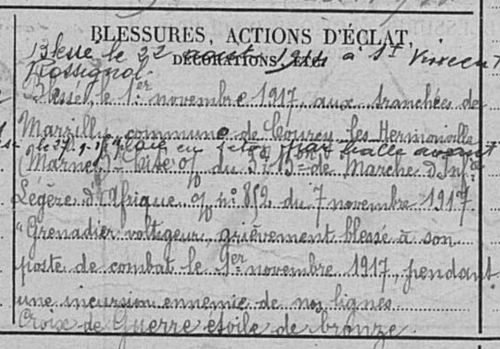 BLESSURES, ACTIONS D'ÉCLAT,
DÉCORATIONS, ETC.
Blessé le 22 août 1914 à St Vincent
Rossignol.
Blessé, le 1er novembre 1917, aux tranchées de
Marzilly commune de Courcy les Hermonville
plaie en séton par balle
(Marne) - Cité o/ du 3e 15e de Marche d'Inf.
Légère d'Afrique o/ n° 852 du 7 novembre 1917
"Grenadier voltigeur, grièvement blessé à son
poste de combat le 1er novembre 1917, pendant
une incursion ennemie de nos lignes
Croix de Guerre étoile de bronze.